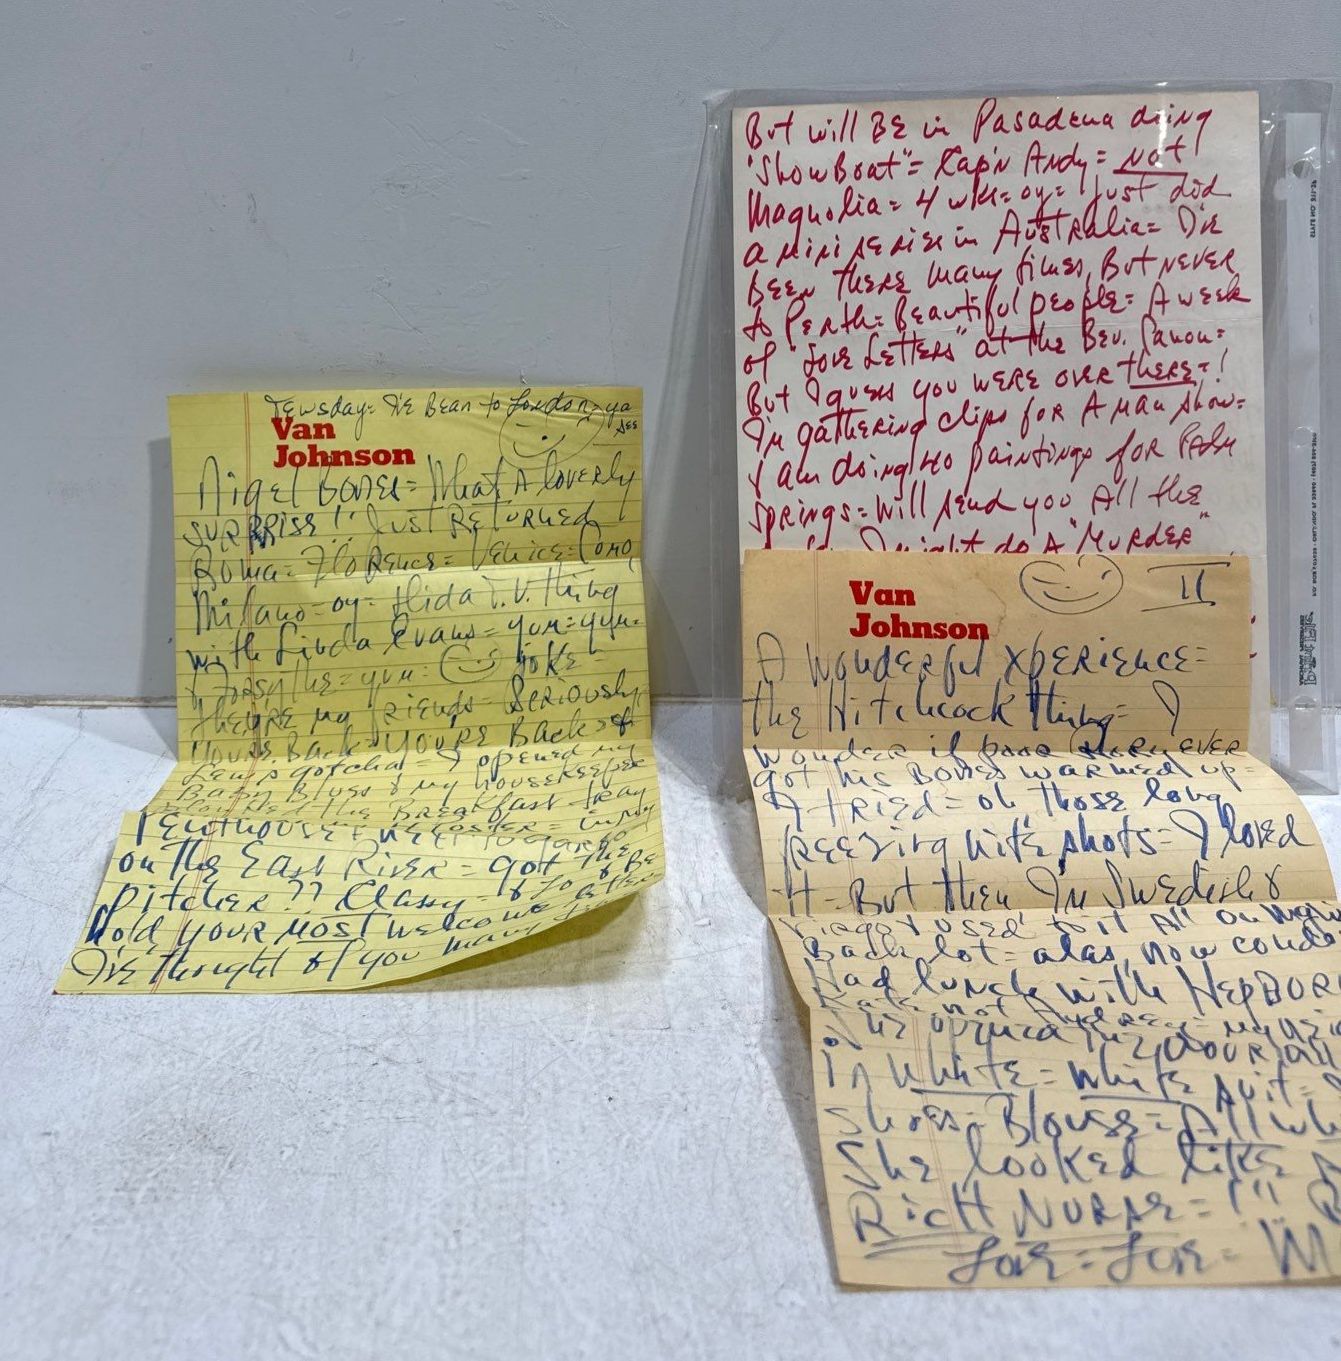 Tewsday= I've Bean to London, ya
see
Van
Johnson
Nigel Bones= What A loverly
surprise!! Just Returned
Roma= Florence= Venice= Como
Milano= oy= Did a T.V. thing
with Linda Evans= yum=yum=
& Forsythe= yum= Joke=
they're my friends= Seriously
yours. Back= you're Back of
Lamps gotcha= I opened my
Baby Blues & my housekeeper
the Breakfast tray
Penthouse
on the East River= got the
Pitcher?? Classy= & to & Be
hold your most welcome letter
I've thought of you many
But will BE in Pasadena doing
"ShowBoat"= Kap'n Andy= not!
Magnolia= 4 wks= oy= Just did
a mini serise in Australia= I've
BEEN there many times, But NEVER
to Perth= Beautiful people= A week
of "Love Letters" at the Bev. Canon=
But I guess you WERE over there=!
I'm gathering clips for A man show=
I am doing 40 paintings for Palm
Springs= Will send you All the
I might do A "Murder"
Van
Johnson
II
A wonderful xperience=
the Hitchcock thing= I
wonder if poor ever
got his Bones warmed up=
I tried= oh those long
freezing nite shots= I loved
it= But then I'm Swedish &
used to it All on
Back lot= alas, now condo
Had lunch with Hepburn
Kate not Audrey=
opened the door all
in White= White suit=
shoes= Blouse= All
She looked like
Rich Nurse=
Love= Love=